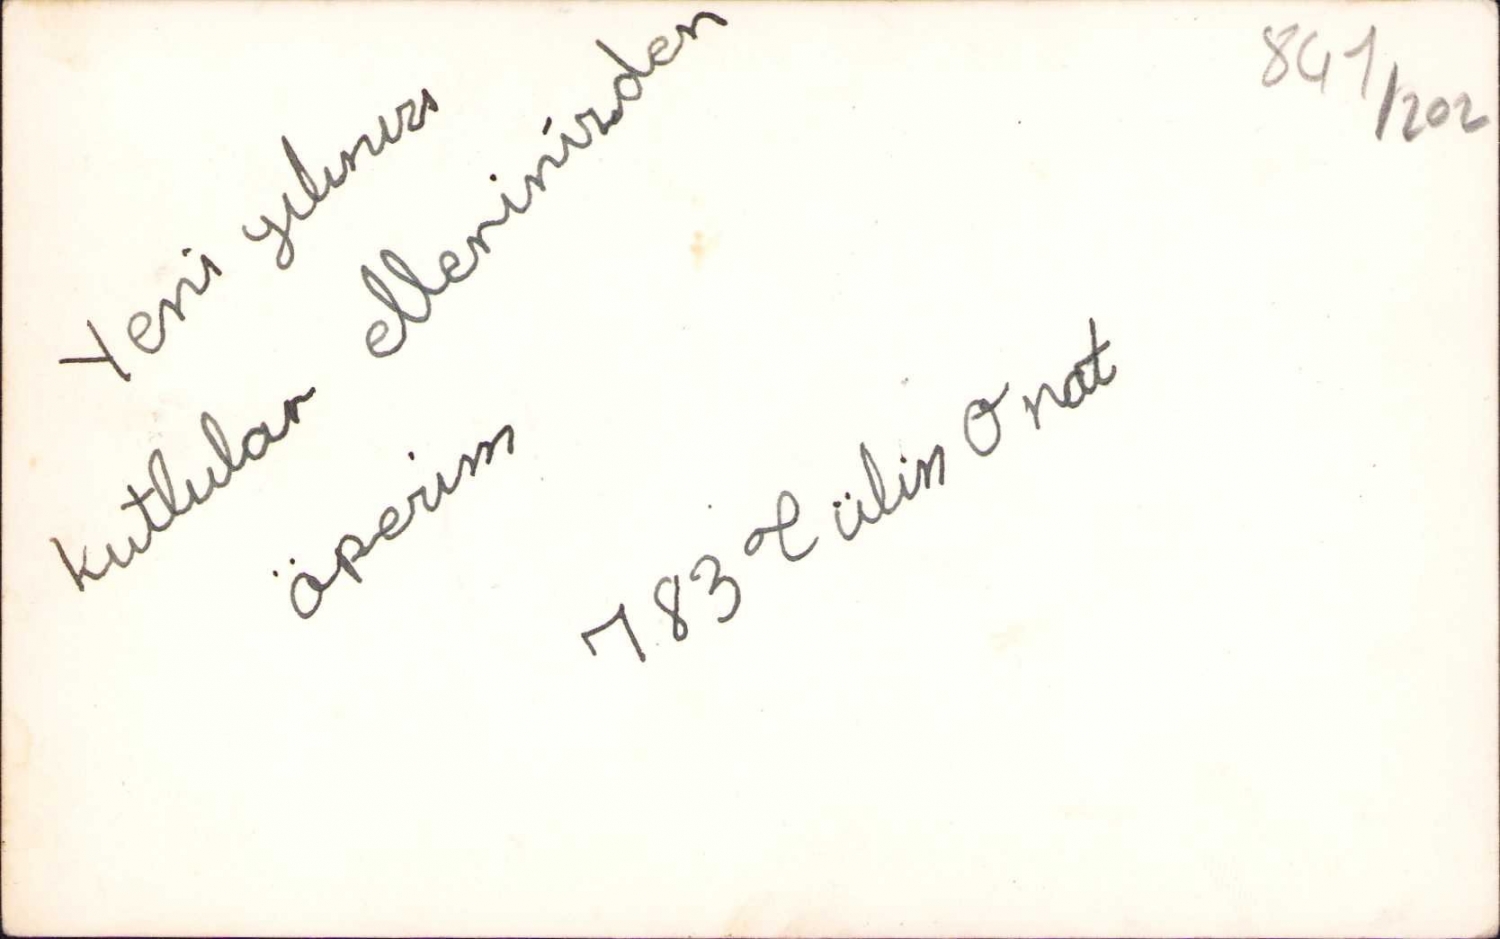 841/202
Yeni yılınızı
kutlular ellerinizden
öperim
783 Tülin Onat